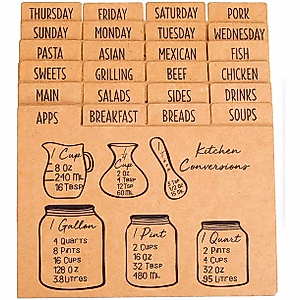 THURSDAY FRIDAY SATURDAY PORK
SUNDAY MONDAY TUESDAY WEDNESDAY
PASTA ASIAN MEXICAN FISH
SWEETS GRILLING BEEF CHICKEN
MAIN SALADS SIDES DRINKS
APPS BREAKFAST BREADS SOUPS
Kitchen
Conversions
1 Cup
8 Oz
240 ML
16 Tbsp
1/4
Cup
2 Oz
4 Tbsp
12 Tsp
60 ML
1 Gallon
4 Quarts
8 Pints
16 Cups
128 Oz
3.8 Litres
1 Pint
2 Cups
16 Oz
32 Tbsp
480 ML
1 Quart
2 Pints
4 Cups
32 Oz
.95 Litres